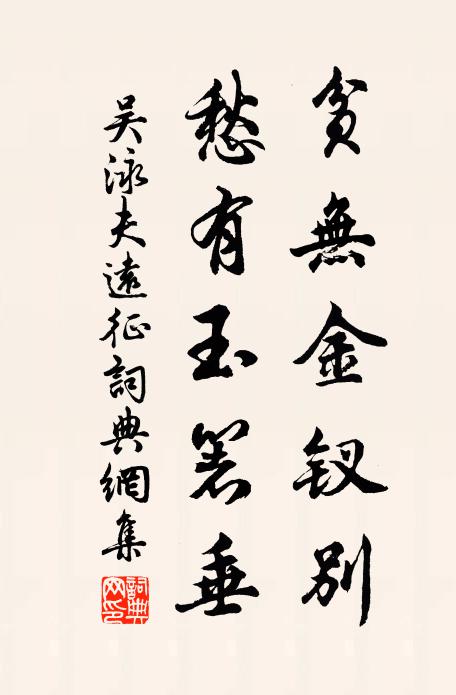 貧無金釵別
愁有玉箸垂
吳泳夫遠征詞典網集
詞典網印